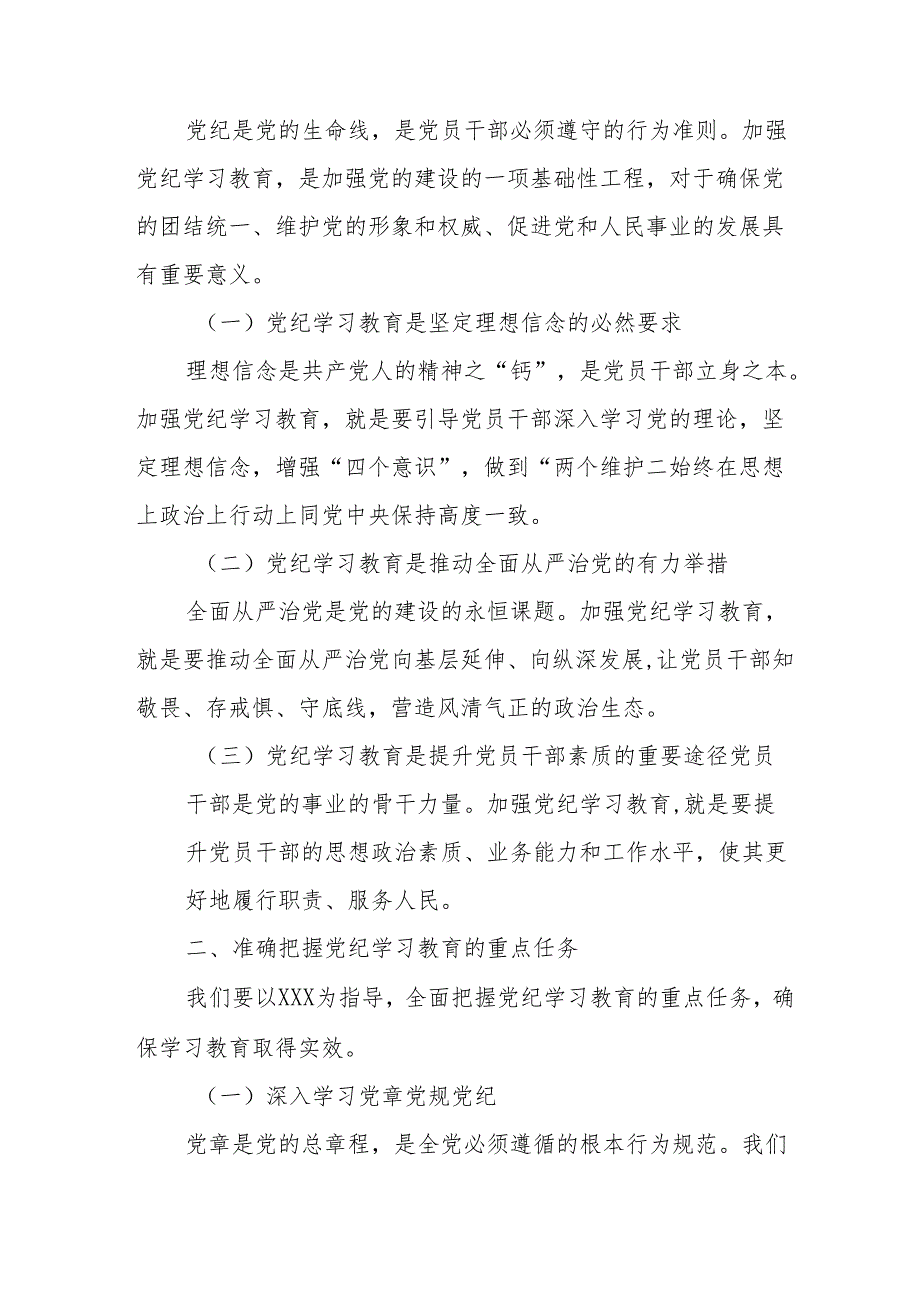 党纪是党的生命线，是党员干部必须遵守的行为准则。加强
党纪学习教育，是加强党的建设的一项基础性工程，对于确保党
的团结统一、维护党的形象和权威、促进党和人民事业的发展具
有重要意义。
（一）党纪学习教育是坚定理想信念的必然要求
理想信念是共产党人的精神之“钙”，是党员干部立身之本。
加强党纪学习教育，就是要引导党员干部深入学习党的理论，坚
定理想信念，增强“四个意识”，做到“两个维护二始终在思想
上政治上行动上同党中央保持高度一致。
（二）党纪学习教育是推动全面从严治党的有力举措
全面从严治党是党的建设的永恒课题。加强党纪学习教育，
就是要推动全面从严治党向基层延伸、向纵深发展,让党员干部知
敬畏、存戒惧、守底线，营造风清气正的政治生态。
（三）党纪学习教育是提升党员干部素质的重要途径党员
干部是党的事业的骨干力量。加强党纪学习教育,就是要提
升党员干部的思想政治素质、业务能力和工作水平，使其更
好地履行职责、服务人民。
二、准确把握党纪学习教育的重点任务
我们要以XXX为指导，全面把握党纪学习教育的重点任务，确
保学习教育取得实效。
（一）深入学习党章党规党纪
党章是党的总章程，是全党必须遵循的根本行为规范。我们